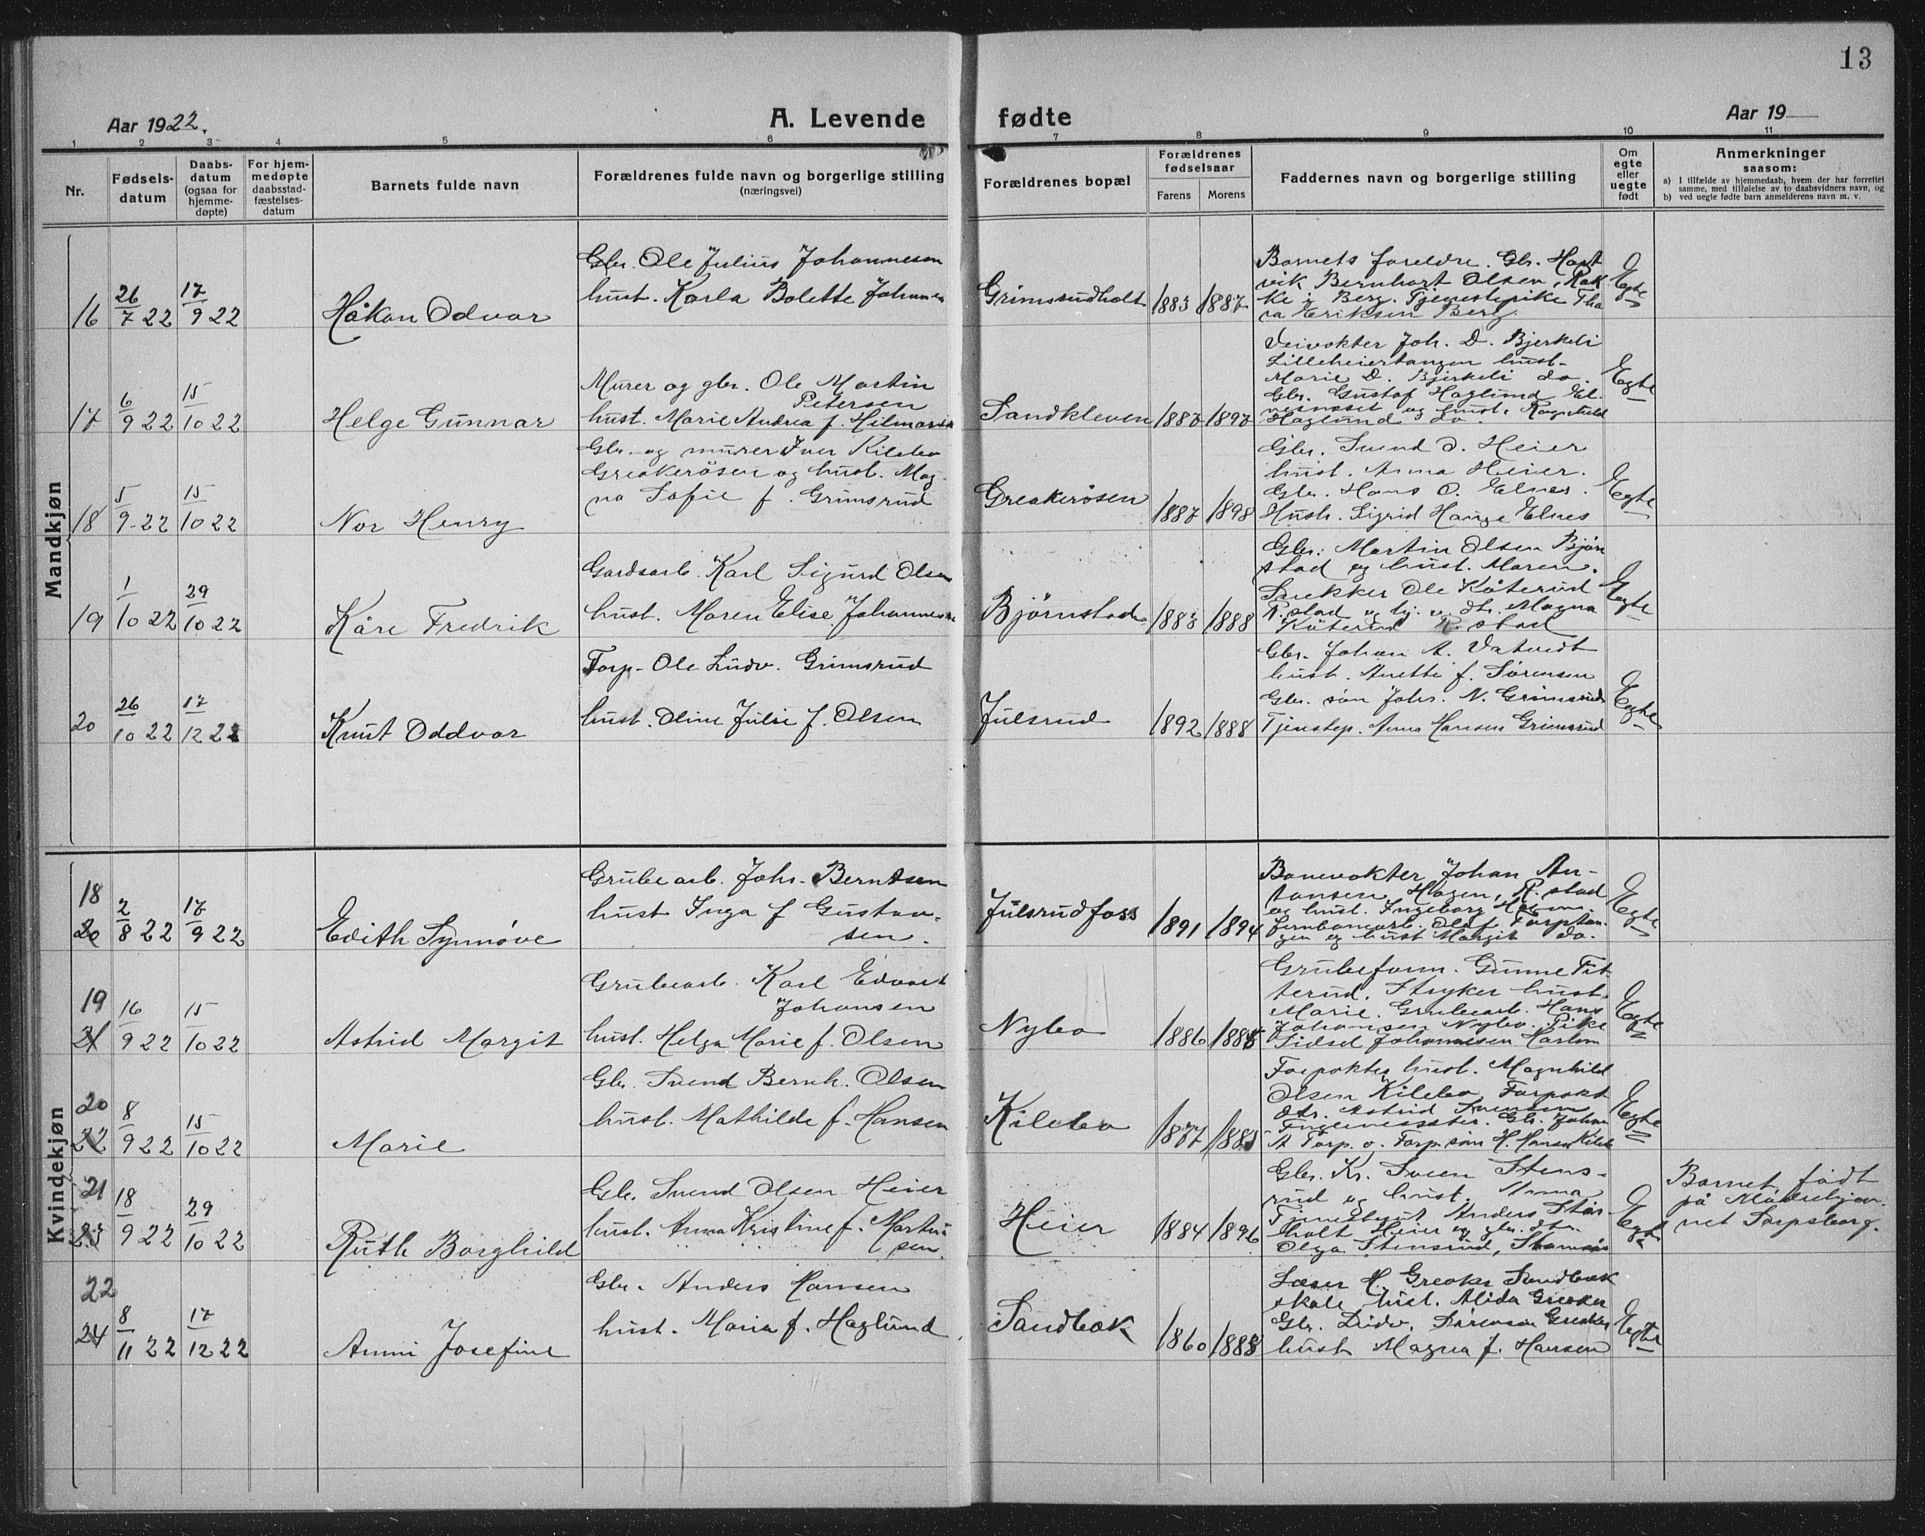 13
Aar 1922.
A. Levende fødte
Aar 19
1 2 3 4 5 6 7 8 9 10 11
Nr.
Fødsels-
datum
Daabs-
datum
(ogsaa for
hjemme-
døpte)
For hjem-
medøpte
daabsstad-
fæstelses-
datum
Barnets fulde navn
Forældrenes fulde navn og borgerlige stilling
(næringsvei)
Forældrenes bopæl
Forældrenes
fødselsaar
Farens Morens
Faddernes navn og borgerlige stilling
Om
egte
eller
uegte
født
Anmerkninger
saasom:
a) I tilfælde av hjemmedaab, hvem der har forrettet
samme, med tilføielse av to daabsvidners navn, og
b) ved uegte fødte barn anmelderens navn m. v.
Mandkjøn
16 26/7 22 17/9 22 Håkan Odvar
Gbr. Ole Julius Johannesen
hust. Karla Bolette Johannen
Grimsrudholt 1883 1887
Barnets foreldre. Gbr. Hart
vik Bernhart Olsen, Rak
ke i Berg. Tjenestepike Tho
ra Eriksen Berg.
Egte
17 6/9 22 15/10 22 Helge Gunnar
Murer og gbr. Ole Martin
Petersen
hust. Marie Andrea f. Hilmarsen
Sandkleven 1887 1897
Veivokter Joh. D. Bjerkeli
Lilleheiertangen hust.
Marie D. Bjerkeli do.
Gbr. Gustaf Haglund El-
vesnæset og hust. Ragnhild
Haglund do.
Egte
18 5/9 22 15/10 22 Nor Henry
Gbr. og murer Iver Kilebo
Greakerøsen og hust. Mag
na Sofie f. Grimsrud
Greakerøsen 1887 1898
Gbr. Svend O. Heier
hust. Anna Heier.
Gbr. Hans O. Elnes.
Hustr. Sigrid Hauge Elnes
Egte
19 1/10 22 29/10 22 Kåre Fredrik
Gardsarb. Karl Sigurd Olsen
hust. Maren Elise Johannesen
Bjørnstad 1883 1888
Gbr. Martin Olsen Bjørn
stad og hust. Maren.
Snekker Ole Kåterud
R.stad og hj. v. dtr. Magna
Kåterud R. stad
Egte
20 26/10 22 17/12 22 Knut Oddvar
Forp. Ole Ludv. Grimsrud
hust. Oline Julie f. Olsen
Julsrud 1892 1888
Gbr. Johan A. Vatvedt
hust. Anette f. Sørensen
Gbr. søn Johs. N. Grimsrud
Tjenstep. Anna Hansen Grimsrud
Egte
Kvindekjøn
18 20 2/8 22 17/9 22 Edith Synnøve
Grubearb. Johs. Berntsen
hust Inga f Gustav-
sen.
Julsrudfoss 1891 1894
Banevokter Johan An-
tonsen Hagen, R. stad
og hust. Ingeborg Hagen.
Jernbanearb. Olaf Torpstan-
gen og hust Margit do.
Egte
19 21 16/9 22 15/10 22 Astrid Margit
Grubearb. Karl Edvart
Johansen
hust. Helga Marie f. Olsen
Nybo 1886 1888
Grubeform. Gunne Tit-
terud. Stryker hust.
Marie. Grubearb. Hans
Johansen Nybo. Pike
Sidsel Johannesen Harlem
Egte
20 22 8/9 22 15/10 22 Marie
Gbr. Svend Bernh. Olsen
hust. Mathilde f. Hansen
Kilebo 1877 1883
Forpakter hust. Magnhild
Olsen Kilebo. Forpakt
dtr. Astrid Svensen
Gbr. Johan
A Torp o. Forp. søn H. Hansen Kilebo
Egte
21 23 18/9 22 29/10 22 Ruth Borghild
Gbr. Svend Olsen Heier
hust. Anna Kristine f. Martin
sen.
Heier 1884 1896
Gbr. Kr. Sveen Stens-
rud og hust. Anna
Tjenestegut Anders Stor-
holt Heier og gbr. dtr.
Olga Stensrud,
Egte
Barnet født
på Mødrehjem-
met Sarpsborg.
22 24 8/11 22 17/12 22 Anni Josefine
Gbr. Anders Hansen
hust. Maria f. Haglund
Sandbæk 1860 1888
Læser H. Greaker Sandbæk
skole, hust. Alida Greaker
Gbr. Ludv. Sørensen Greaker
hust Magna f. Hansen
Egte